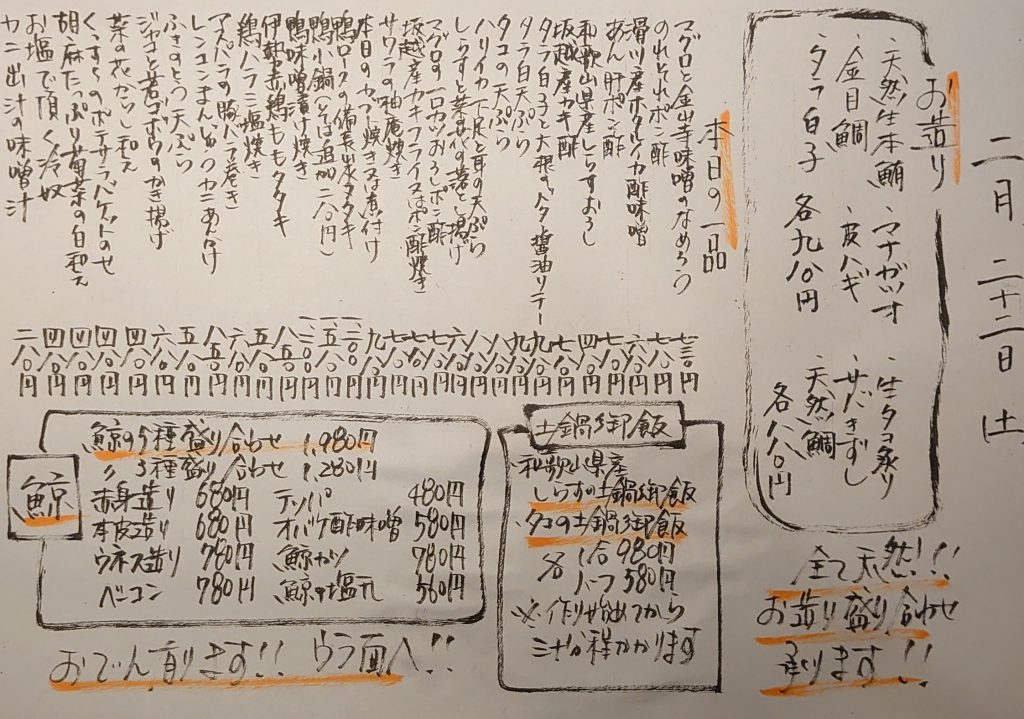 二月二十二日(土)
お造り
・天然生本鮪
・マナガツオ
・生タコ炙り
・金目鯛
・皮ハギ
・サバきずし
・タラ白子 各九八〇円
・天然鯛 各八八〇円
全て天然!!
お造り盛り合わせ
承ります!!
本日の一品
マグロと金山寺味噌のなめろう 七三〇円
のれそれポン酢 七八〇円
滑川産ホタルイカ酢味噌 六八〇円
あん肝ポン酢 七八〇円
和歌山県産しらすおろし 四八〇円
坂越産カキ酢 七八〇円
タラ白子と大根のバター醤油ソテー 九八〇円
タラ白子天ぷら 九八〇円
タコの天ぷら 八八〇円
ハリイカ下足と耳の天ぷら 八八〇円
しらすと菜の花のかき揚げ 六八〇円
マグロの一口カツおろしポン酢 七八〇円
坂越産カキフライ又はポン酢焼き 七八〇円
サワラの柚庵焼き 九八〇円
本日のカブト焼き又は煮付け
鴨ロースの備長出汁タタキ
鴨小鍋(そば追加二八〇円)
鴨味噌漬け焼き
伊勢赤鶏ももタタキ 八八〇円
鶏ハラミ塩焼き 五八〇円
アスパラの豚バラ巻き 六八〇円
レンコンまんじゅうカニあんかけ 八五〇円
ふきのとう天ぷら 五八〇円
ジャコと若ゴボウのかき揚げ 六八〇円
菜の花からし和え 四八〇円
くずし ポテサラバゲットのせ 四八〇円
胡麻たっぷり菊菜の白和え 四八〇円
お塩で頂く冷奴 四八〇円
カニ出汁の味噌汁 二八〇円
土鍋御飯
・和歌山県産
しらすの土鍋御飯
・タコの土鍋御飯
各 1合 980円
ハーフ 580円
※作り始めてから
三十分程かかります
鯨
鯨の5種盛り合わせ 1,980円
〃 3種盛り合わせ 1,280円
赤身造り 680円 テッパ 480円
本皮造り 680円 オバケ酢味噌 580円
ウネス造り 780円 鯨カツ 780円
ベーコン 780円 鯨の塩 560円
おでん有ります!! ウラ面へ!!